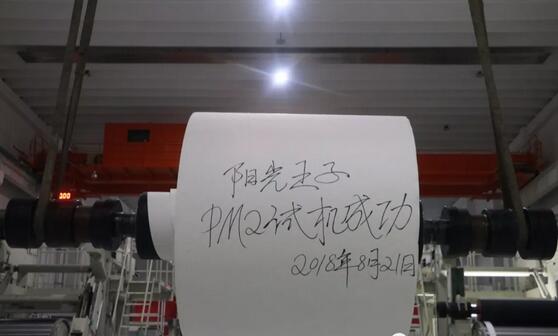 阳光王子
PM2试机成功
2018年8月21日